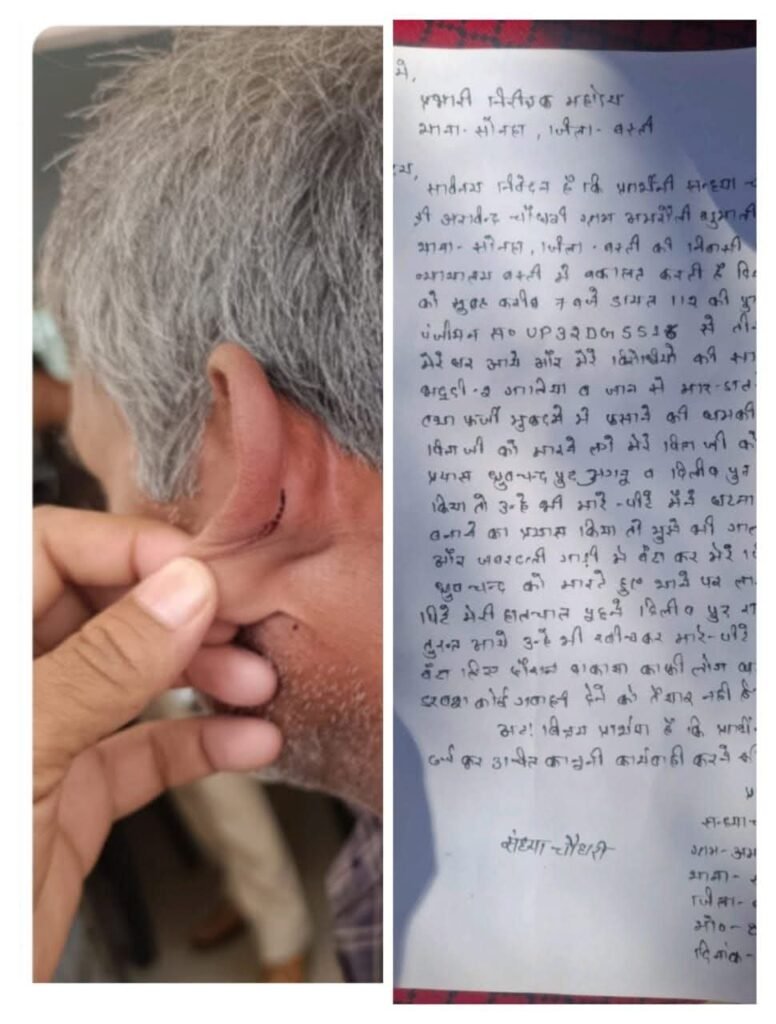 में,
प्रभारी निरीक्षक महोदय
थाना- सोनहा, जिला- बस्ती
सविनय निवेदन है कि प्रार्थिनी सन्ध्या
श्री अरविन्द चौधरी ग्राम अमरौली शुमाली
थाना- सोनहा, जिला- बस्ती की निवासी
न्यायालय बस्ती में वकालत करती है
को सुबह करीब 7 बजे डायल 112 की
पंजीयन स० UP32DG 55 से
मेरे घर आये और मेरे विरोधियो की
भद्दी-२ गालिया व जान से मार-डाल
तथा फर्जी मुकदमे में फसाने की धमकी
पिता जी को मारने लगे मेरे पिता जी को
प्रयास ध्रुवचन्द पुत्र व दिलीप पुत्र
किया तो उन्हे भी मारे-पीटे मैंने घटना
बनाने का प्रयास किया तो मुझे भी
और जबरदस्ती गाड़ी में बैठा कर मेरे
ध्रुवचन्द को मारते हुए थाने पर
पीटे मेरी हालचाल पूछने दिलीप पुत्र
तुरन्त आये उन्हे भी खीचकर मारे-पीटे
बैठा लिए काफी लोग
डरवश कोई गवाही देने को तैयार नही
अतः विनम्र प्रार्थना है कि
दर्ज कर उचित कानूनी कार्यवाही करने की
संध्या चौधरी
सन्ध्या
ग्राम- अम
थाना-
जिला-
मो०-
दिनांक-